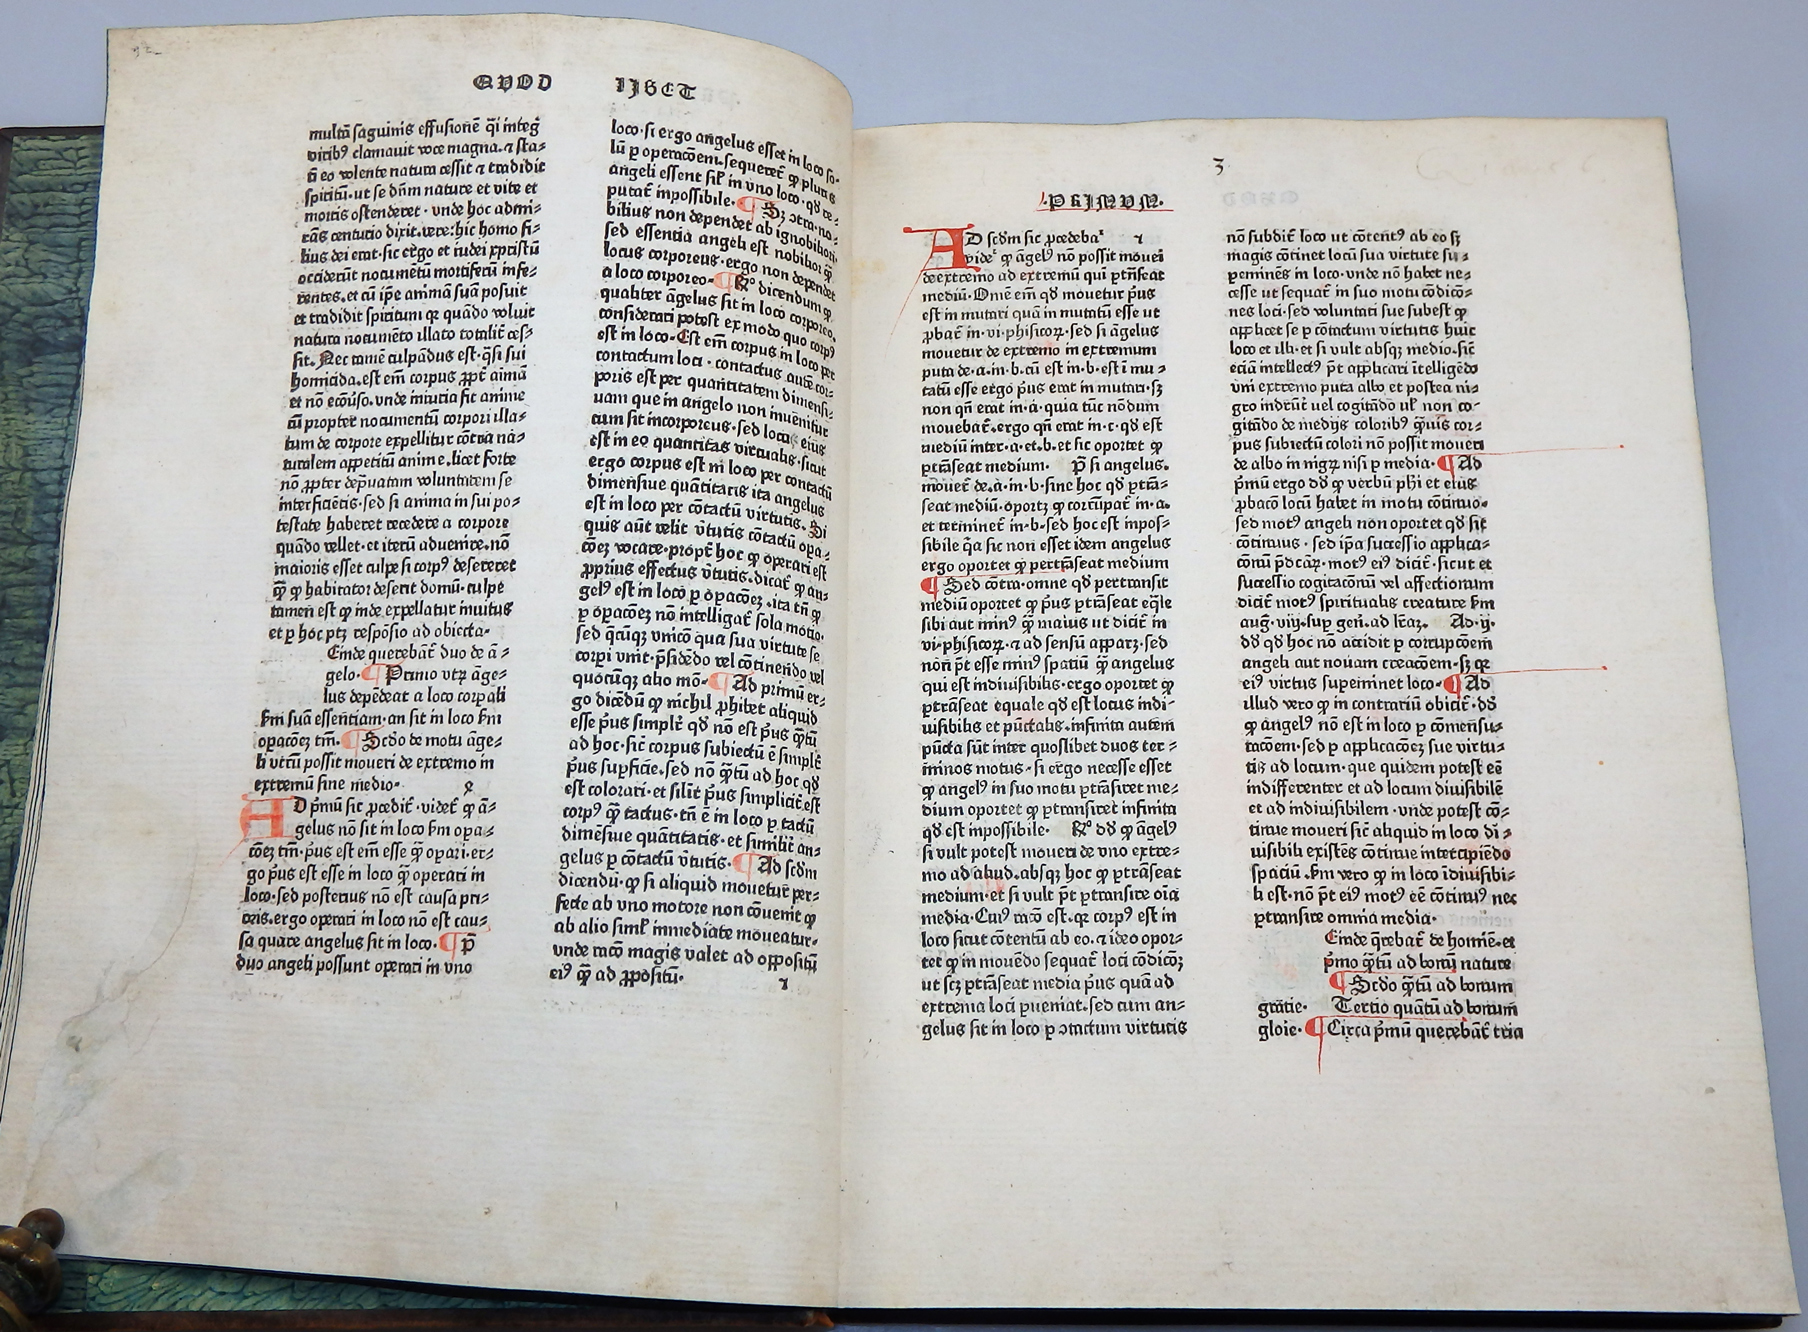 QVOD LIBET
multā sāguinis effusionē q̄i inteḡ
viribꝰ clamauit voce magna. ⁊ sta⸗
tī eo volente natura cessit ⁊ tradidit
spiritū. ut se dn̄m nature et vite et
mortis ostenderet · vnde hoc admi⸗
rās centurio dixit. vere: hic homo fi⸗
lius dei erat · sic ergo et iudei xpristū
occiderūt nocumētū mortiferū infe⸗
rentes. et cū ip̄e animā suā posuit
et tradidit spiritum qr quādo voluit
natura nocumēto illato totalit̄ ces⸗
sit. Nec tamē culpādus est · q̄si sui
homicida. est em̄ corpus ꝓpt̄ aīmā
et nō ecōuso. vnde iniuria fit anime
cū propter nocumentū corpori illa⸗
tum de corpore expellitur cōtra na⸗
turalem appetitū anime. licet forte
nō ꝓpter dep̄uatam voluntatem se
interficiētis · sed si anima in sui po⸗
testate haberet recedere a corpore
quādo vellet · et iterū aduenire. nō
maioris esset culpe si corpꝰ desereret
q̄ꝫ ꝙ habitator deserit domū · culpe
tamen est ꝙ inde expellatur inuitus
et ꝑ hoc ptꝫ respōsio ad obiecta·
Einde querebat̄ duo de ā⸗
gelo· ¶ Primo vtꝝ āge⸗
lus depēdeat a loco corp̄ali
km̄ suā essentiam · an sit in loco km̄
opacōeꝫ tm̄· ¶ Scd̄o de motu āge⸗
li vtrū possit moueri de extremo in
extremū sine medio·
AD p̄mū sic ꝓcedit̄ · videt̄ ꝙ ā⸗
gelus nō sit in loco km̄ opa⸗
cōeꝫ tm̄ · p̄us est em̄ esse q̄ꝫ opari · er⸗
go p̄us est esse in loco q̄ꝫ operari in
loco · sed posterius nō est causa pri⸗
oris. ergo operari in loco nō est cau⸗
sa quare angelus sit in loco· ¶ P̄
duo angeli possunt operari in vno
loco · si ergo angelus esset in loco so⸗
lū ꝑ operacōem. sequeret̄ ꝙ plures
angeli essent sil̄ in vno loco · qd̄ re⸗
putat̄ inpossibile· ¶ Sꝫ ↄtra · no⸗
bilius non dependet ab ignobiliori·
sed essentia angeli est nobilior q̄ꝫ
locus corporeus · ergo non dependet
a loco corporeo· ¶ R̄º dicendum ꝙ
qualiter āgelus sit in loco corporeo.
considerari potest ex modo quo corpꝰ
est in loco · Est em̄ corpus in loco per
contactum loci · contactus autē cor⸗
poris est per quantitatem dimensi⸗
uam que in angelo non inuenitur
cum sit incorporeus · sed locus eius
est in eo quantitas virtualis · sicut
ergo corpus est in loco per contactū
dimensiue quātitatis ita angelus
est in loco per cōtactū virtutis. Si
quis aūt velit v̄tutis cōtactū opa⸗
cōeꝫ vocare · propt̄ hoc ꝙ operari est
ꝓprius effectus v̄tutis. dicat̄ ꝙ an⸗
gelꝰ est in loco ꝑ opacōeꝫ · ita tn̄ ꝙ
ꝑ opacōeꝫ nō intelligat̄ sola motio·
sed q̄cūqꝫ vnicō qua sua virtute se
corpi vnit · p̄sidēdo vel cōtinendo vel
quocūqꝫ alio mō· ¶ Ad primū er⸗
go dicēdū ꝙ nichil ꝓhibet aliquid
esse p̄us simpl̄r qd̄ nō est p̄us q̄tū
ad hoc · sic̄ corpus subiectū ē simpl̄r
p̄us sup̄ficie. sed nō q̄tū ad hoc qd̄
est colorari · et silīt̄ p̄us simplicit̄ est
corpꝰ q̄ꝫ tactus · tn̄ ē in loco ꝑ tactū
dimēsiue quātitatis · et simīlit̄ an⸗
gelus ꝑ cōtactū v̄tutis· ¶ Ad scd̄m
dicendū · ꝙ si aliquid mouetur per⸗
fecte ab vno motore non cōuenit ꝙ
ab alio simł immediate moueatur·
vnde racō magis valet ad oppositū
eiꝰ q̄ꝫ ad ꝓpositū·
3
·PRIMVM·
AD scd̄m sic ꝓcedebat̄
videt̄ ꝙ āgelꝰ nō possit moueri
de extremo ad extremū quī ptn̄seat
mediū · Om̄e em̄ qd̄ mouetur p̄us
est in mutari quā in mutatū esse ut
ꝓbat̄ in · vi · phisicoꝝ · sed si āgelus
mouetur de extremo in extremum
puta de · a · in · b · cū est in · b · est ī mu⸗
tatū esse ergo p̄us erat in mutari · sꝫ
non qn̄ erat in · a · quia tūc nōdum
mouebat̄. ergo qn̄ erat in · c · qd̄ est
mediū inter · a · et · b. et sic oportet ꝙ
ptrāseat medium· P̄ si angelus.
mouet̄ de · a · in · b · sine hoc qd̄ ptrā⸗
seat mediū · oportꝫ ꝙ corrūpat̄ in · a·
et terminet̄ in · b · sed hoc est inpos⸗
sibile q̄a sic non esset idem angelus
ergo oportet ꝙ pertrāseat medium
¶ Sed cōtra · omne qd̄ pertransit
mediū oportet ꝙ p̄us ptrāseat eq̄le
sibi aut minꝰ q̄ꝫ maius ut dicit̄ in
vi · phisicoꝝ · ⁊ ad sensū apparꝫ · sed
non p̄t esse minꝰ spatiū q̄ꝫ angelus
qui est indiuisibilis · ergo oportet ꝙ
ptrāseat equale qd̄ est locus indi⸗
uisibilis et pūctalis · infinita autem
pūcta sūt inter quoslibet duos ter⸗
minos motus · si ergo necesse esset
ꝙ angelꝰ in suo motu ptrāsiret me⸗
dium oportet ꝙ ptransiret infinita
qd̄ est inpossibile· R̄º dd̄ ꝙ āgelꝰ
si vult potest moueri de vno extre⸗
mo ad aliud. absqꝫ hoc ꝙ ptrāseat
medium · et si vult p̄t ptransire oīa
media · Cuiꝰ racō est · qr corpꝰ est in
loco sicut cōtentū ab eo · ⁊ ideo opor⸗
tet ꝙ in mouēdo sequat̄ loci cōdicōeꝫ
ut scꝫ ptrāseat media p̄us quā ad
extrema loci pueniat. sed cum an⸗
gelus sit in loco ꝑ ↄtactum virtutis
nō subdit̄ loco ut cōtentꝰ ab eo sꝫ
magis cōtinet locū sua virtute su⸗
peminēs in loco · vnde nō habet ne⸗
cesse ut sequat̄ in suo motu cōdicō⸗
nes loci · sed voluntati sue subest ꝙ
applicet se ꝑ cōtactum virtutis huic
loco et illi · et si vult absqꝫ medio · sic̄
eciā intellectꝰ p̄t applicari ītelligēdo
vni extremo puta albo et postea ni⸗
gro indr̄nt̄ vel cogitādo ul̄ non co⸗
gitādo de medijs coloribꝰ q̄uis cor⸗
pus subiectū colori nō possit moueri
de albo in nigꝝ nisi ꝑ media· ¶ Ad
p̄mū ergo dd̄ ꝙ verbū phi et eius
ꝓbacō locū habet in motu cōtinuo·
sed motꝰ angeli nōn oportet qd̄ sit
cōtinuus · sed ip̄a successio applica⸗
conū p̄dcāꝝ · motꝰ eiꝰ dicit̄ · sicut et
successio cogitacōnū vel affectionum
dicit̄ motꝰ spiritualis creature km̄
auḡ · viij · sup̄ gen̄. ad lr̄aꝫ. Ad · ij·
dd̄ qd̄ hoc nō accidit ꝑ corrupcōem
angeli aut nouam creacōem · sꝫ qr
eiꝰ virtus supeminet loco· ¶ Ad
illud vero ꝙ in contrariū obicit̄ · dd̄
ꝙ angelꝰ nō est in loco ꝑ cōmensu⸗
tacōem · sed ꝑ applicacōeꝫ sue virtu⸗
tis ad locum · que quidem potest eē
indifferenter et ad locum diuisibilē
et ad indiuisibilem · vnde potest cō⸗
tinue moueri sic̄ aliquid in loco di⸗
uisibili existēs cōtinue intercipiēdo
spaciū. km̄ vero ꝙ in loco īdiuisibi⸗
li est · nō p̄t eiꝰ motꝰ eē cōtinuꝰ nec
ptransire omnia media·
Einde q̄rebat̄ de homīe · et
p̄mo q̄tū ad bonū nature
¶ Scd̄o q̄tū ad bonum
gratie· Tertio quātū ad bonum
glorie· ¶ Circa p̄mū querebāt̄ tria